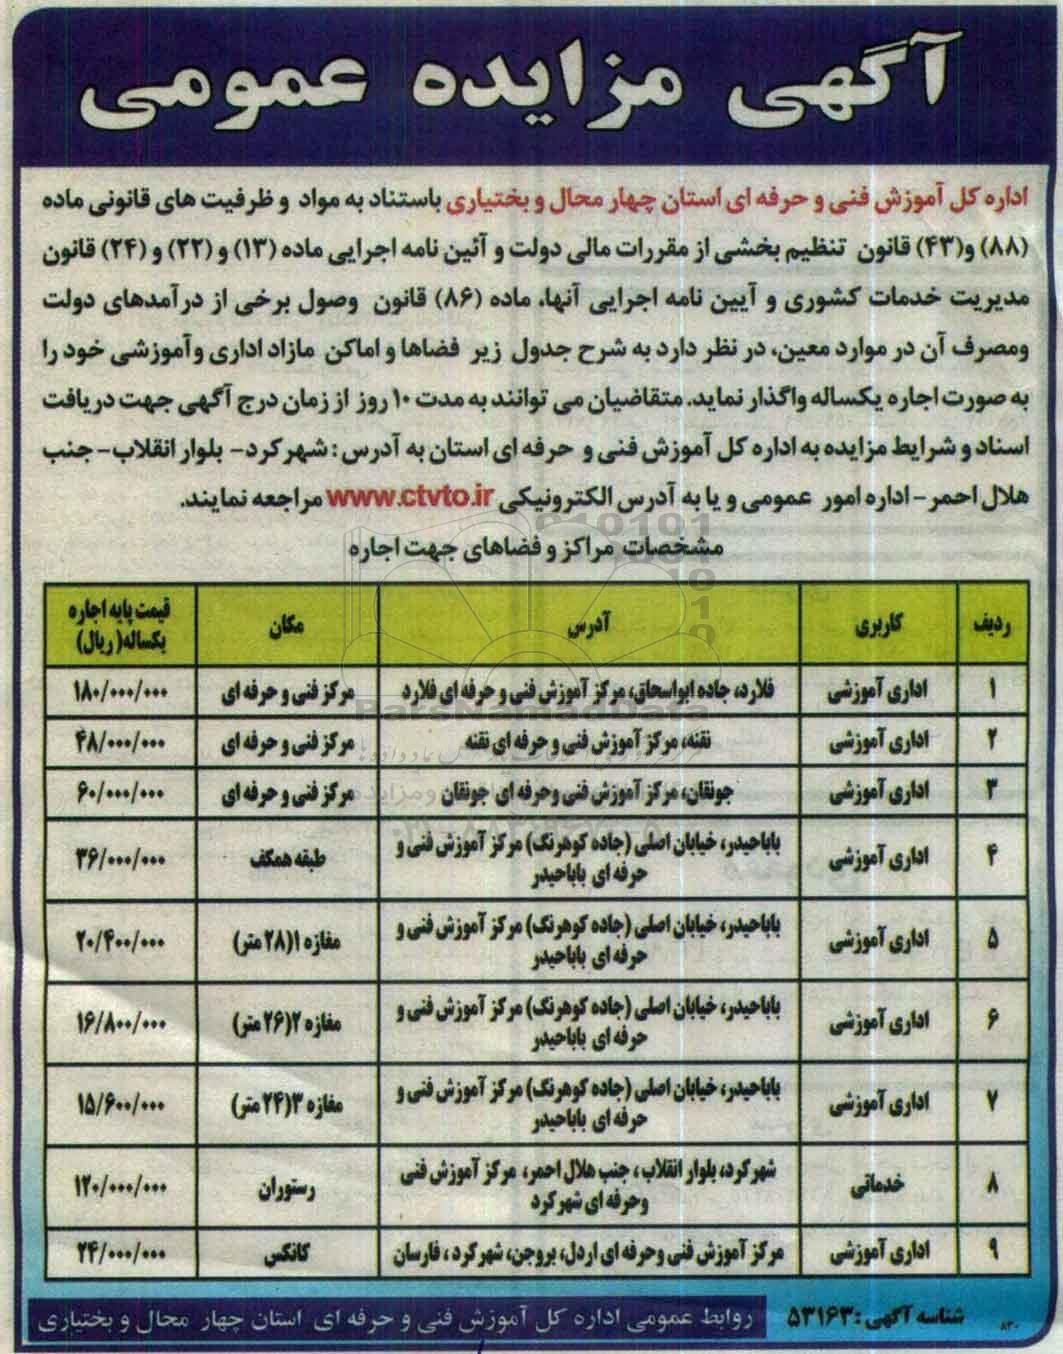 آگهی مزایده عمومی
اداره کل آموزش فنی و حرفه ای استان چهار محال و بختیاری باستناد به مواد و ظرفیت های قانونی ماده
(۸۸) و(۴۳) قانون تنظیم بخشی از مقررات مالی دولت و آئین نامه اجرایی ماده (۱۳) و (۲۲) و (۲۴) قانون
مدیریت خدمات کشوری و آیین نامه اجرایی آنها، ماده (۸۶) قانون وصول برخی از درآمدهای دولت
ومصرف آن در موارد معین، در نظر دارد به شرح جدول زیر فضاها و اماکن مازاد اداری وآموزشی خود را
به صورت اجاره یکساله واگذار نماید. متقاضیان می توانند به مدت ۱۰ روز از زمان درج آگهی جهت دریافت
اسناد و شرایط مزایده به اداره کل آموزش فنی و حرفه ای استان به آدرس : شهرکرد- بلوار انقلاب- جنب
هلال احمر- اداره امور عمومی و یا به آدرس الکترونیکی www.ctvto.ir مراجعه نمایند.
مشخصات مراکز و فضاهای جهت اجاره
ردیف کاربری آدرس مکان قیمت پایه اجاره
یکساله( ریال)
۱ اداری آموزشی فلارد، جاده ابواسحاق، مرکز آموزش فنی و حرفه ای فلارد مرکز فنی و حرفه ای ۱۸۰/۰۰۰/۰۰۰
۲ اداری آموزشی نقنه، مرکز آموزش فنی و حرفه ای نقنه مرکز فنی و حرفه ای ۴۸/۰۰۰/۰۰۰
۳ اداری آموزشی جونقان، مرکز آموزش فنی وحرفه ای جونقان مرکز فنی و حرفه ای ۶۰/۰۰۰/۰۰۰
۴ اداری آموزشی باباحیدر، خیابان اصلی (جاده کوهرنگ) مرکز آموزش فنی و
حرفه ای باباحیدر طبقه همکف ۳۶/۰۰۰/۰۰۰
۵ اداری آموزشی باباحیدر، خیابان اصلی (جاده کوهرنگ) مرکز آموزش فنی و
حرفه ای باباحیدر مغازه ۱(۲۸ متر) ۲۰/۴۰۰/۰۰۰
۶ اداری آموزشی باباحیدر، خیابان اصلی (جاده کوهرنگ) مرکز آموزش فنی و
حرفه ای باباحیدر مغازه ۲(۲۶ متر) ۱۶/۸۰۰/۰۰۰
۷ اداری آموزشی باباحیدر، خیابان اصلی (جاده کوهرنگ) مرکز آموزش فنی و
حرفه ای باباحیدر مغازه ۳(۲۴ متر) ۱۵/۶۰۰/۰۰۰
۸ خدماتی شهرکرد، بلوار انقلاب ، جنب هلال احمر، مرکز آموزش فنی
وحرفه ای شهرکرد رستوران ۱۲۰/۰۰۰/۰۰۰
۹ اداری آموزشی مرکز آموزش فنی وحرفه ای اردل، بروجن، شهرکرد ، فارسان کانکس ۲۴/۰۰۰/۰۰۰
ParsNamadData
۸۳۰ شناسه آگهی : ۵۳۱۶۳
روابط عمومی اداره کل آموزش فنی و حرفه ای استان چهار محال و بختیاری